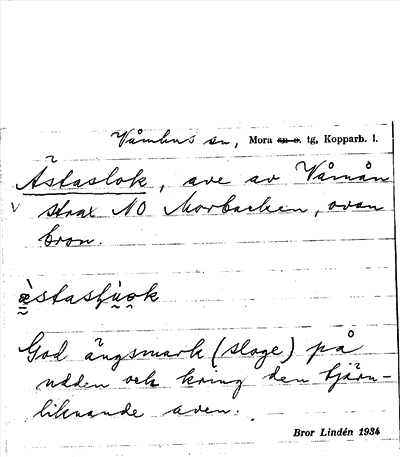 Våmhus sn, Mora sn o. tg, Kopparb. l.
Ästaslok, ave av Våmån
√ strax NO Morbacken, ovan
bron.
God ängsmark (sloge) på
udden och kring den tjärn-
liknande aven.
Bror Lindén 1934